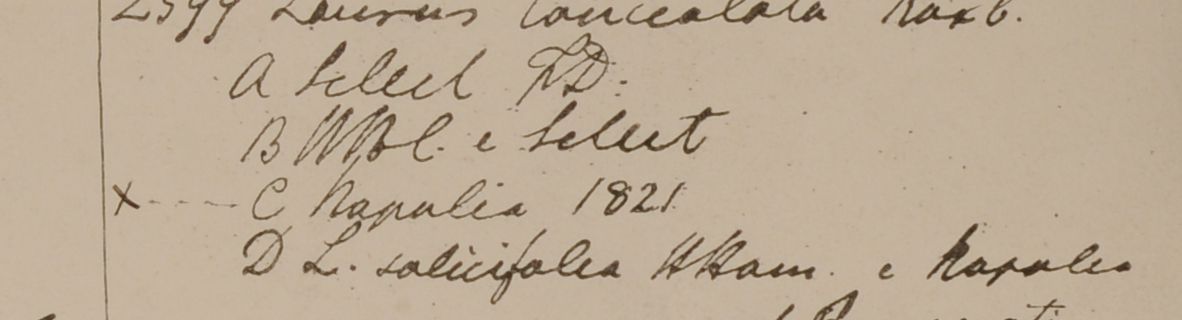 2599 Laurus lanceolata Roxb.
A Select F.D.
B HBC. e Select
× C Napalia 1821
D L. salicifolia HHam. e Napalia